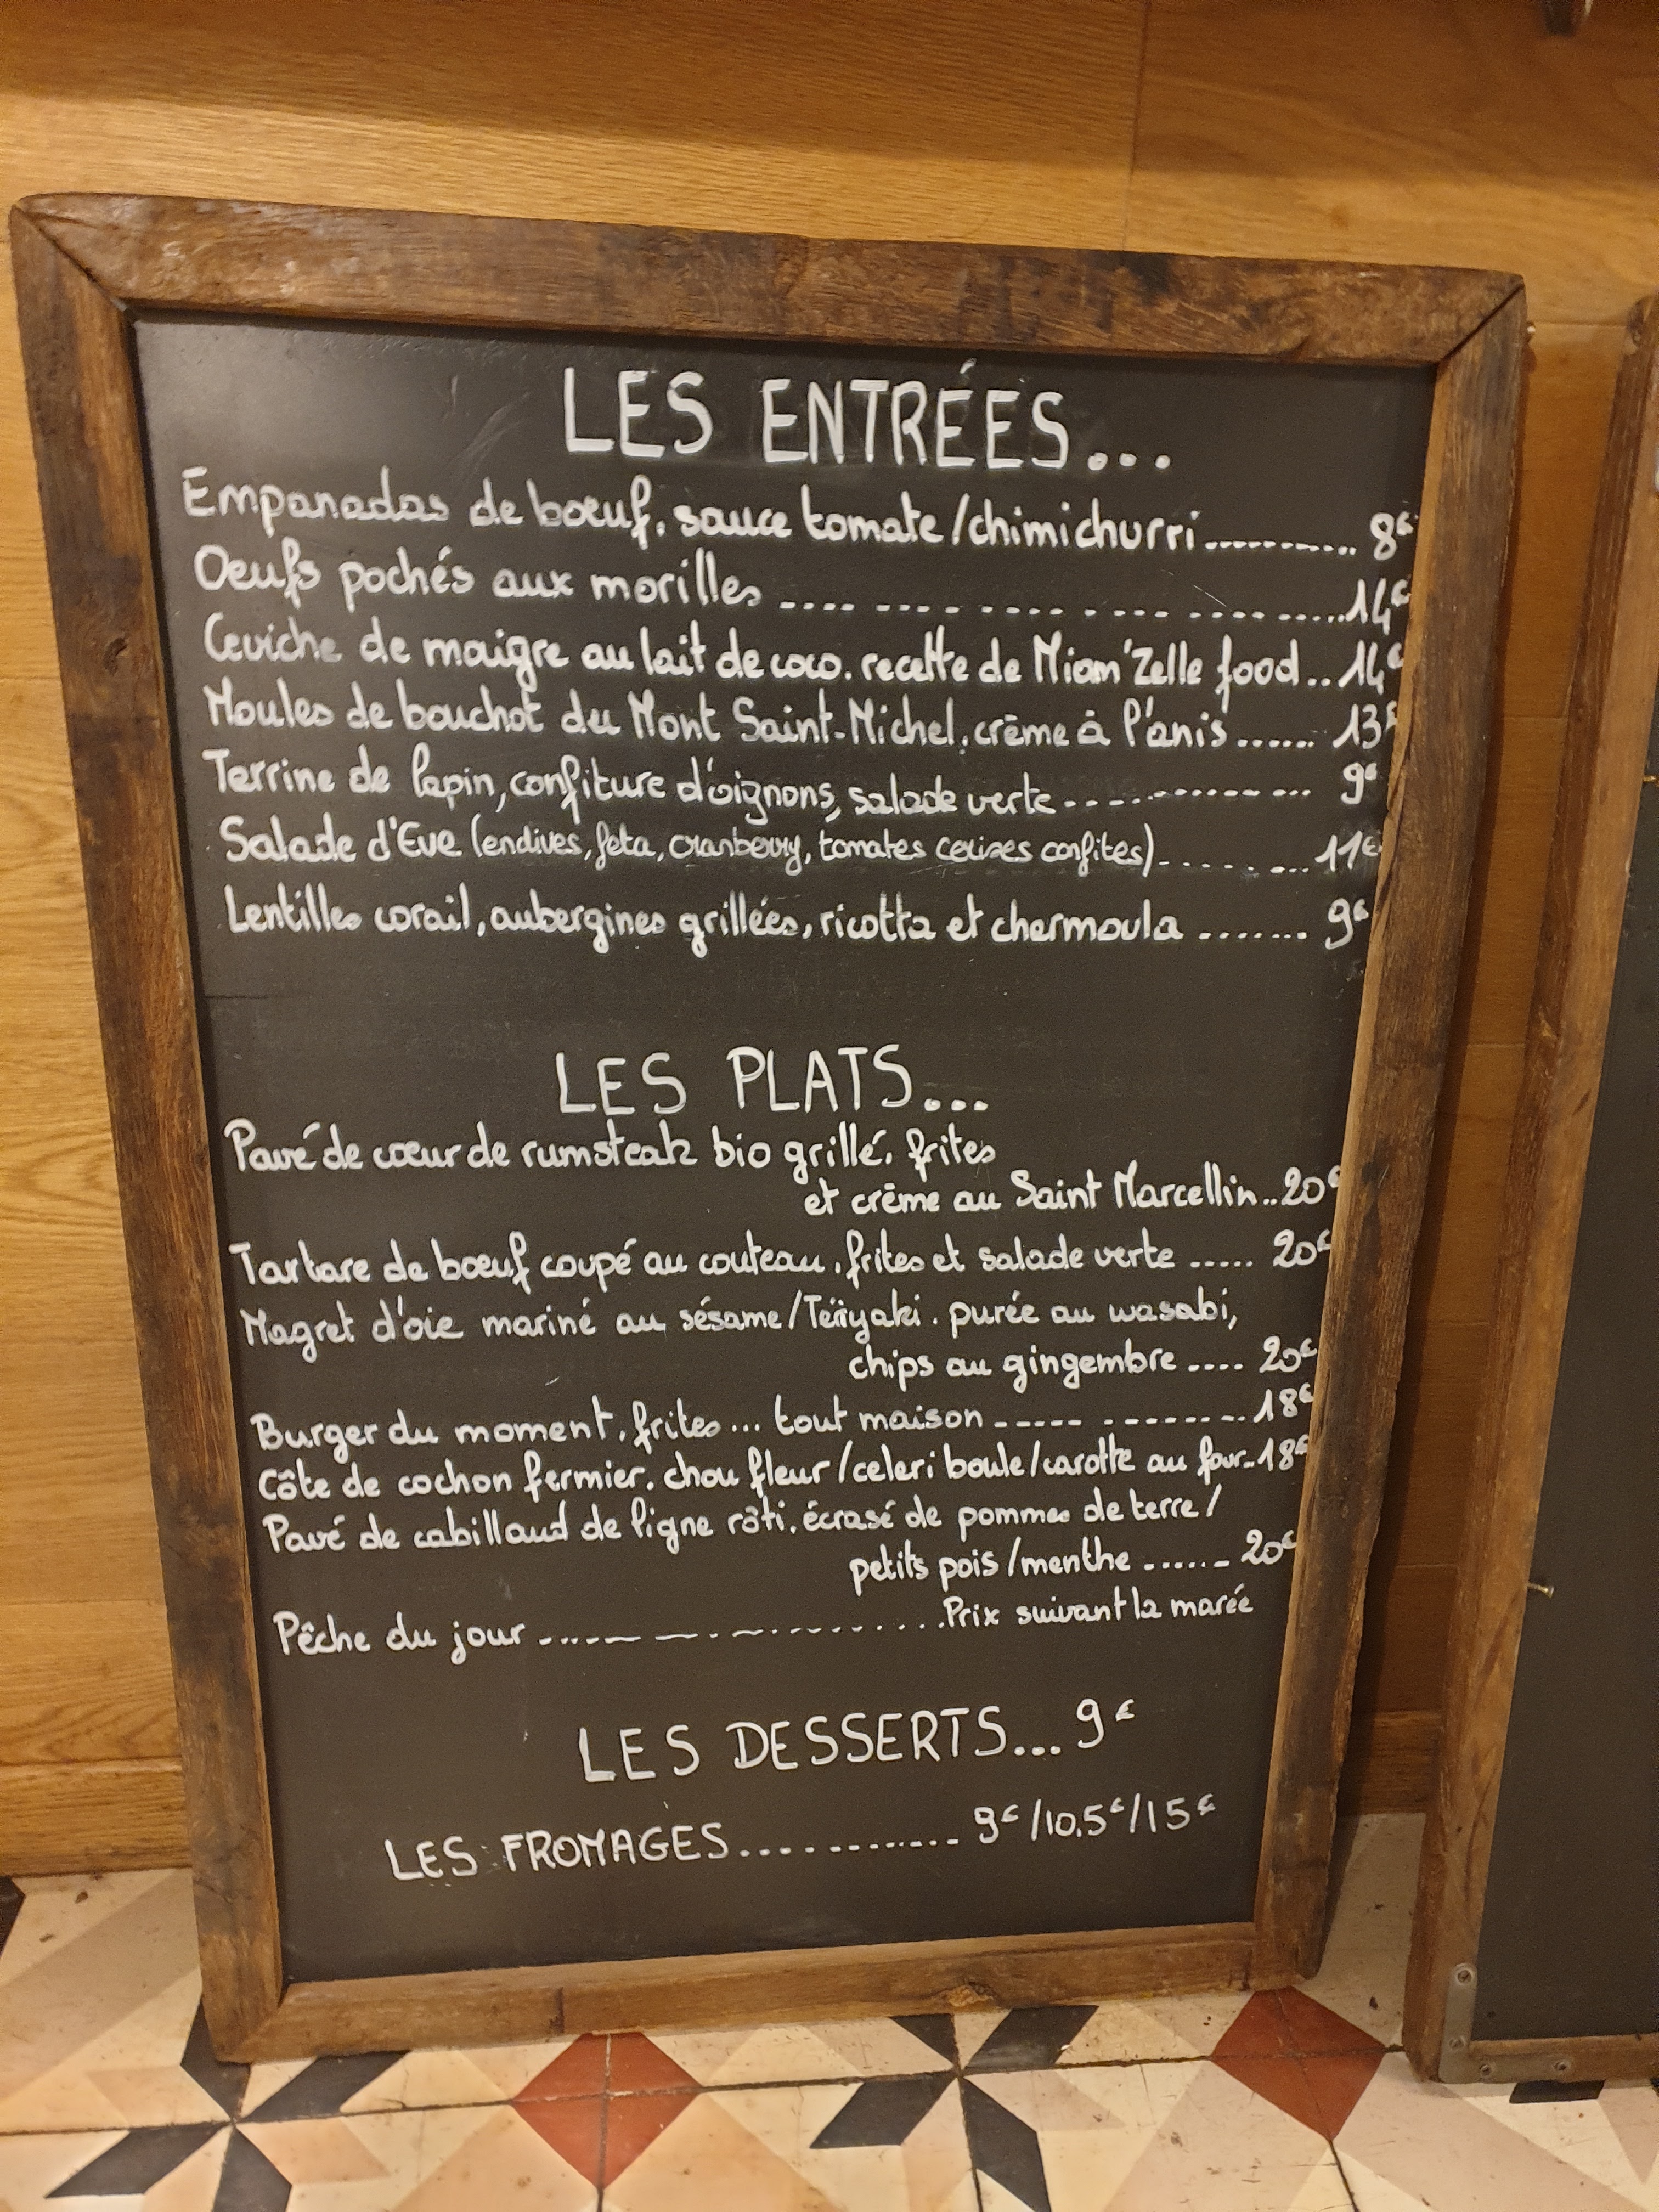 LES ENTRÉES...
Empanadas de boeuf, sauce tomate/chimichurri ........... 8€
Oeufs pochés aux morilles .... .... . .... . ... . .... ......14€
Ceviche de maigre au lait de coco. recette de Miam'Zelle food..14€
Moules de bouchot du Mont Saint-Michel, crème à l'anis...... 13€
Terrine de lapin, confiture d'oignons, salade verte ............... 9€
Salade d'Eve (endives, feta, cranberry, tomates cerises confites)......... 11€
Lentilles corail, aubergines grillées, ricotta et chermoula ....... 9€
LES PLATS...
Pavé de coeur de rumsteak bio grillé, frites
et crème au Saint Marcellin..20€
Tartare de boeuf coupé au couteau, frites et salade verte ..... 20€
Magret d'oie mariné au sésame/Teriyaki. purée au wasabi,
chips au gingembre .... 20€
Burger du moment, frites... tout maison ----- --------.18€
Côte de cochon fermier. chou fleur/celeri boule/carotte au four..18€
Pavé de cabillaud de ligne rôti, écrasé de pommes de terre/
petits pois/menthe ...... 20€
Pêche du jour ..................... Prix suivant la marée
LES DESSERTS... 9€
LES FROMAGES............ 9€/10.5€/15€